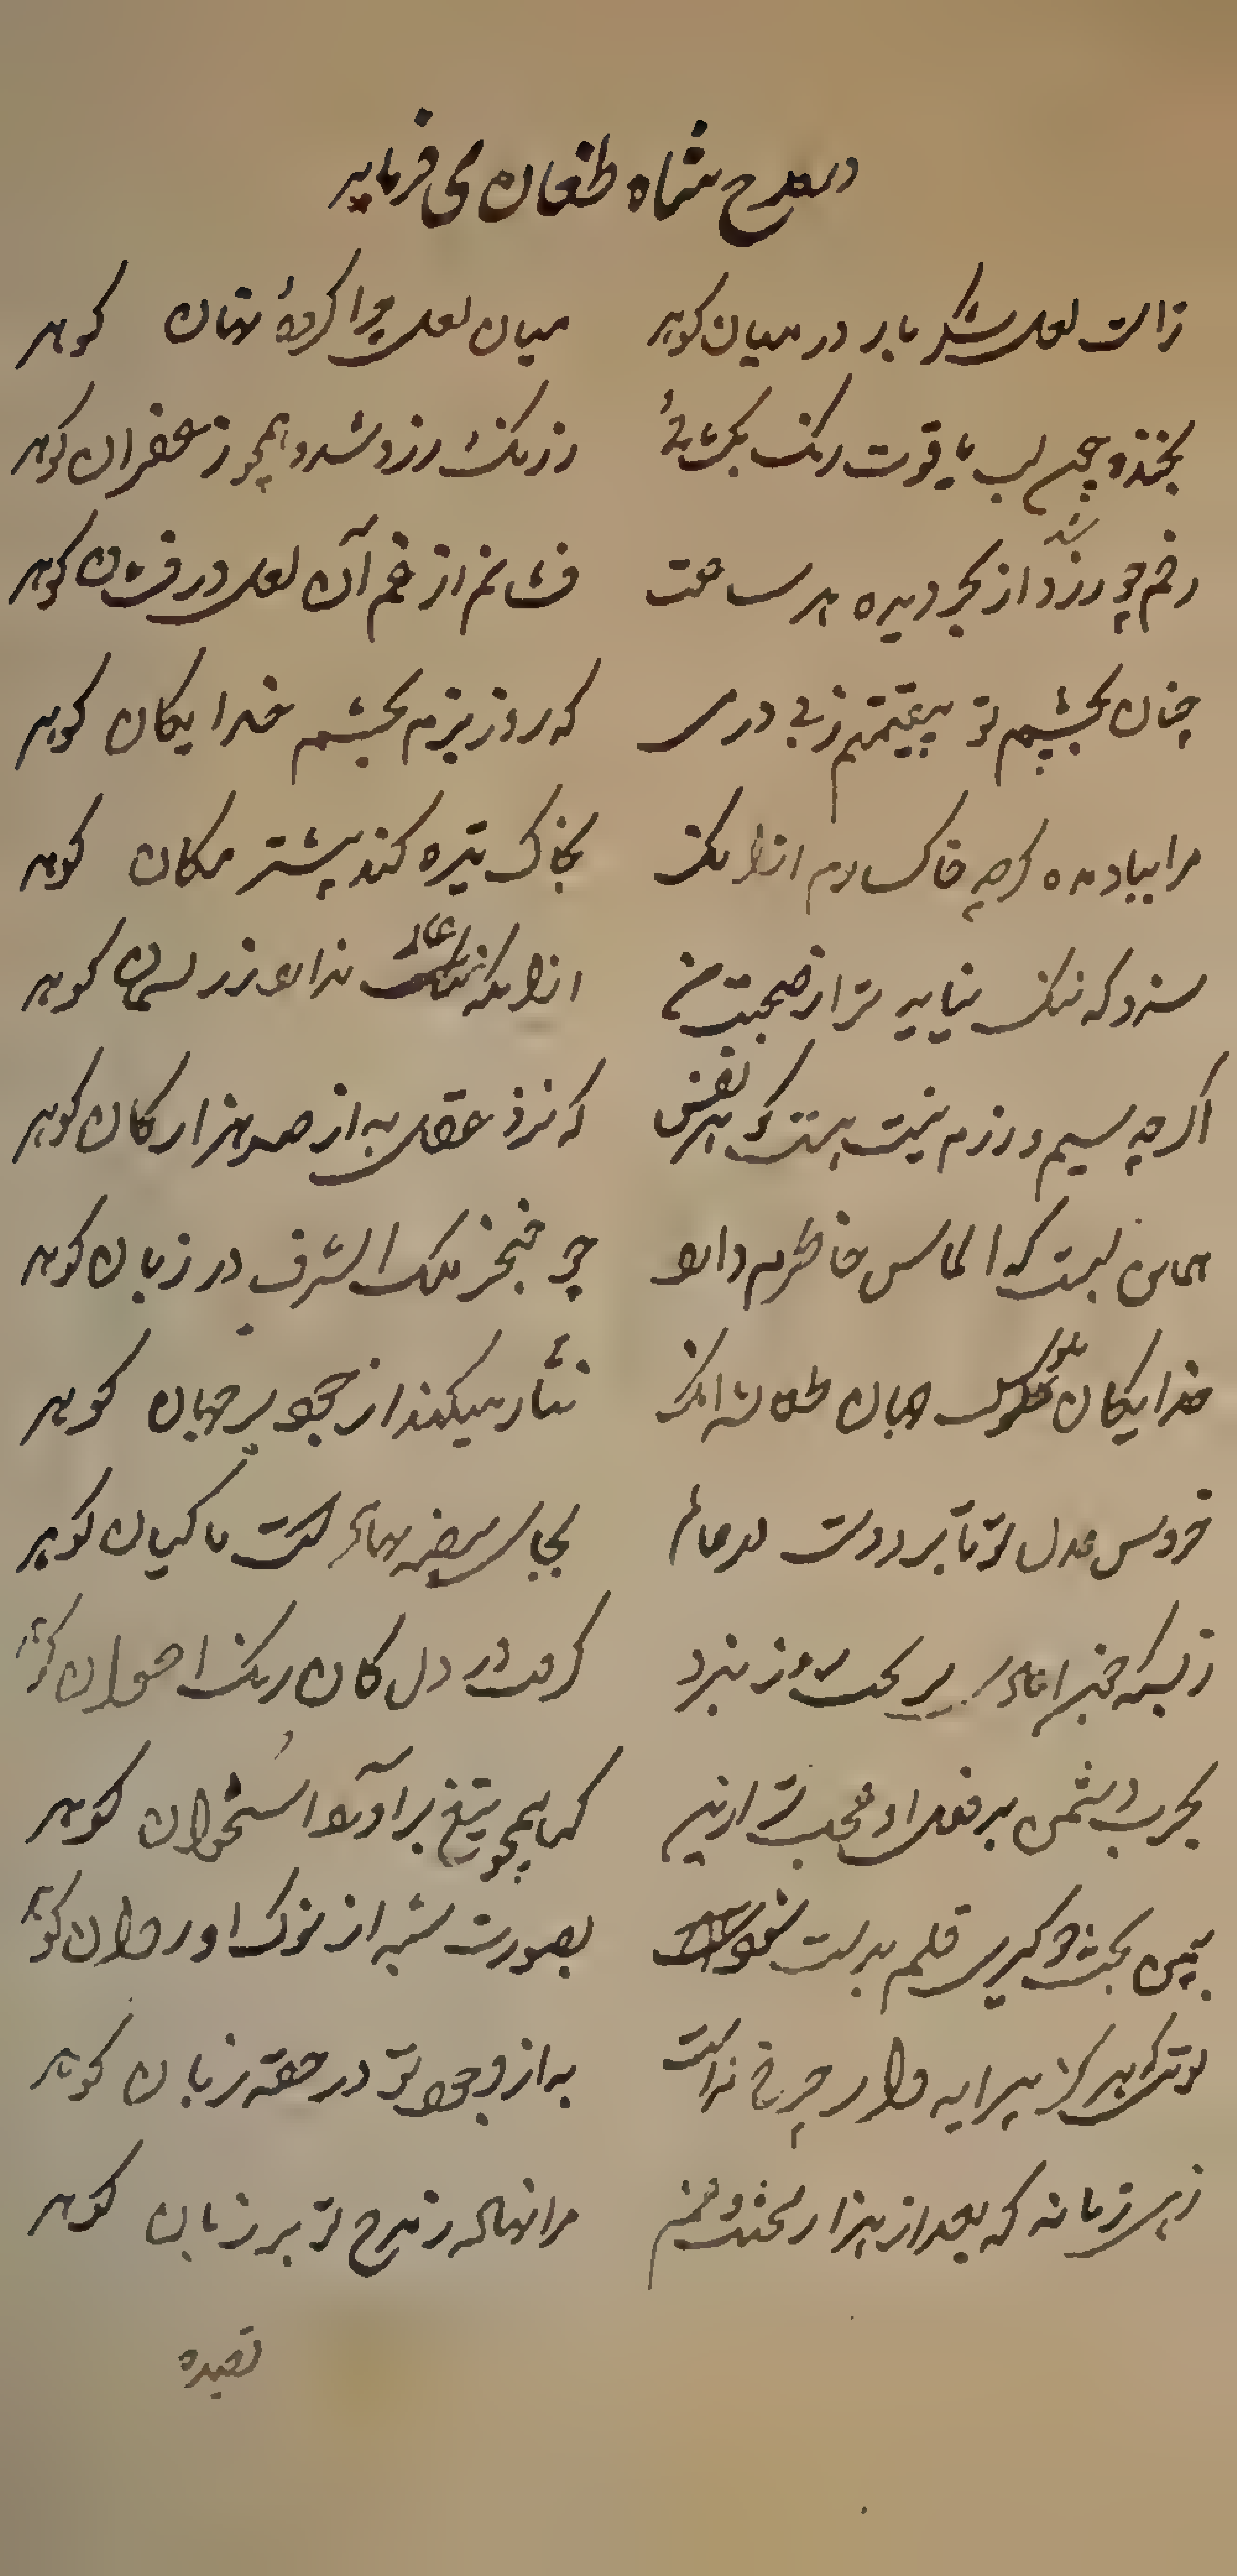 در مدح شاه طغان می فرماید
زاتت لعل شکر بار در میان کوهر میان لعل چرا کردهٔ نهان کوهر
بخنده چون لب یاقوت رنک بکشائی ز رنک زرد شود همچو زعفران کوهر
رخم چو زر شد و از بحر دیده هر ساعت فشانم از غم آن لعل درفشان کوهر
چنان بچشم تو بیقیمتم ز بی درمی که روز بزم بچشم خدایکان کوهر
مرا بباد مده کرچه خاکسارم ازانک بخاک تیره کند بیشتر مکان کوهر
سزد که ننک نیاید ترا ز صحبت من ازانکه ننک ندارد ز ریسمان کوهر
اکرچه سیم و زرم نیست هست کوهر نفس که نزد عقل به از صد هزار کان کوهر
همان بست که الماس خاطرم دارد چو خنجر ملک الشرق در زبان کوهر
خدایکان ملوک جهان طغانشه انک نثار میکند از جود بر جهان کوهر
خروس عدل تو تا پر زدست در عالم بجای بیضه نهادست ماکیان کوهر
ز بسکه خنجر اعادی بریخت روز نبرد کرفت در دل کان رنک ارغوان کوهر
بحرب دشمن بدفعل او عجب تر ازین که همچو تیغ برآورد استخوان کوهر
ببین بخت چو کیری قلم بدست شود بصورت شبه از نوک او روان کوهر
توئی که هرکز پیرایه دار چرخ نداشت به از وجود تو در حقهٔ زمان کوهر
زهی زمانه که بعد از هزار محنت و غم مرا نهاد ز مدح تو بر زبان کوهر
قصیده